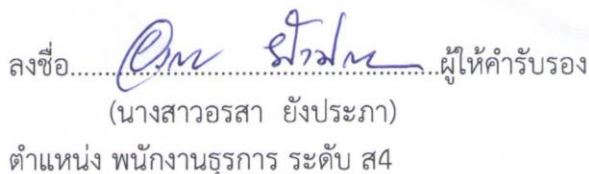 ลงชื่อ....................................................ผู้ให้คำรับรอง
(นางสาวอรสา ยังประภา)
ตำแหน่ง พนักงานธุรการ ระดับ ส4